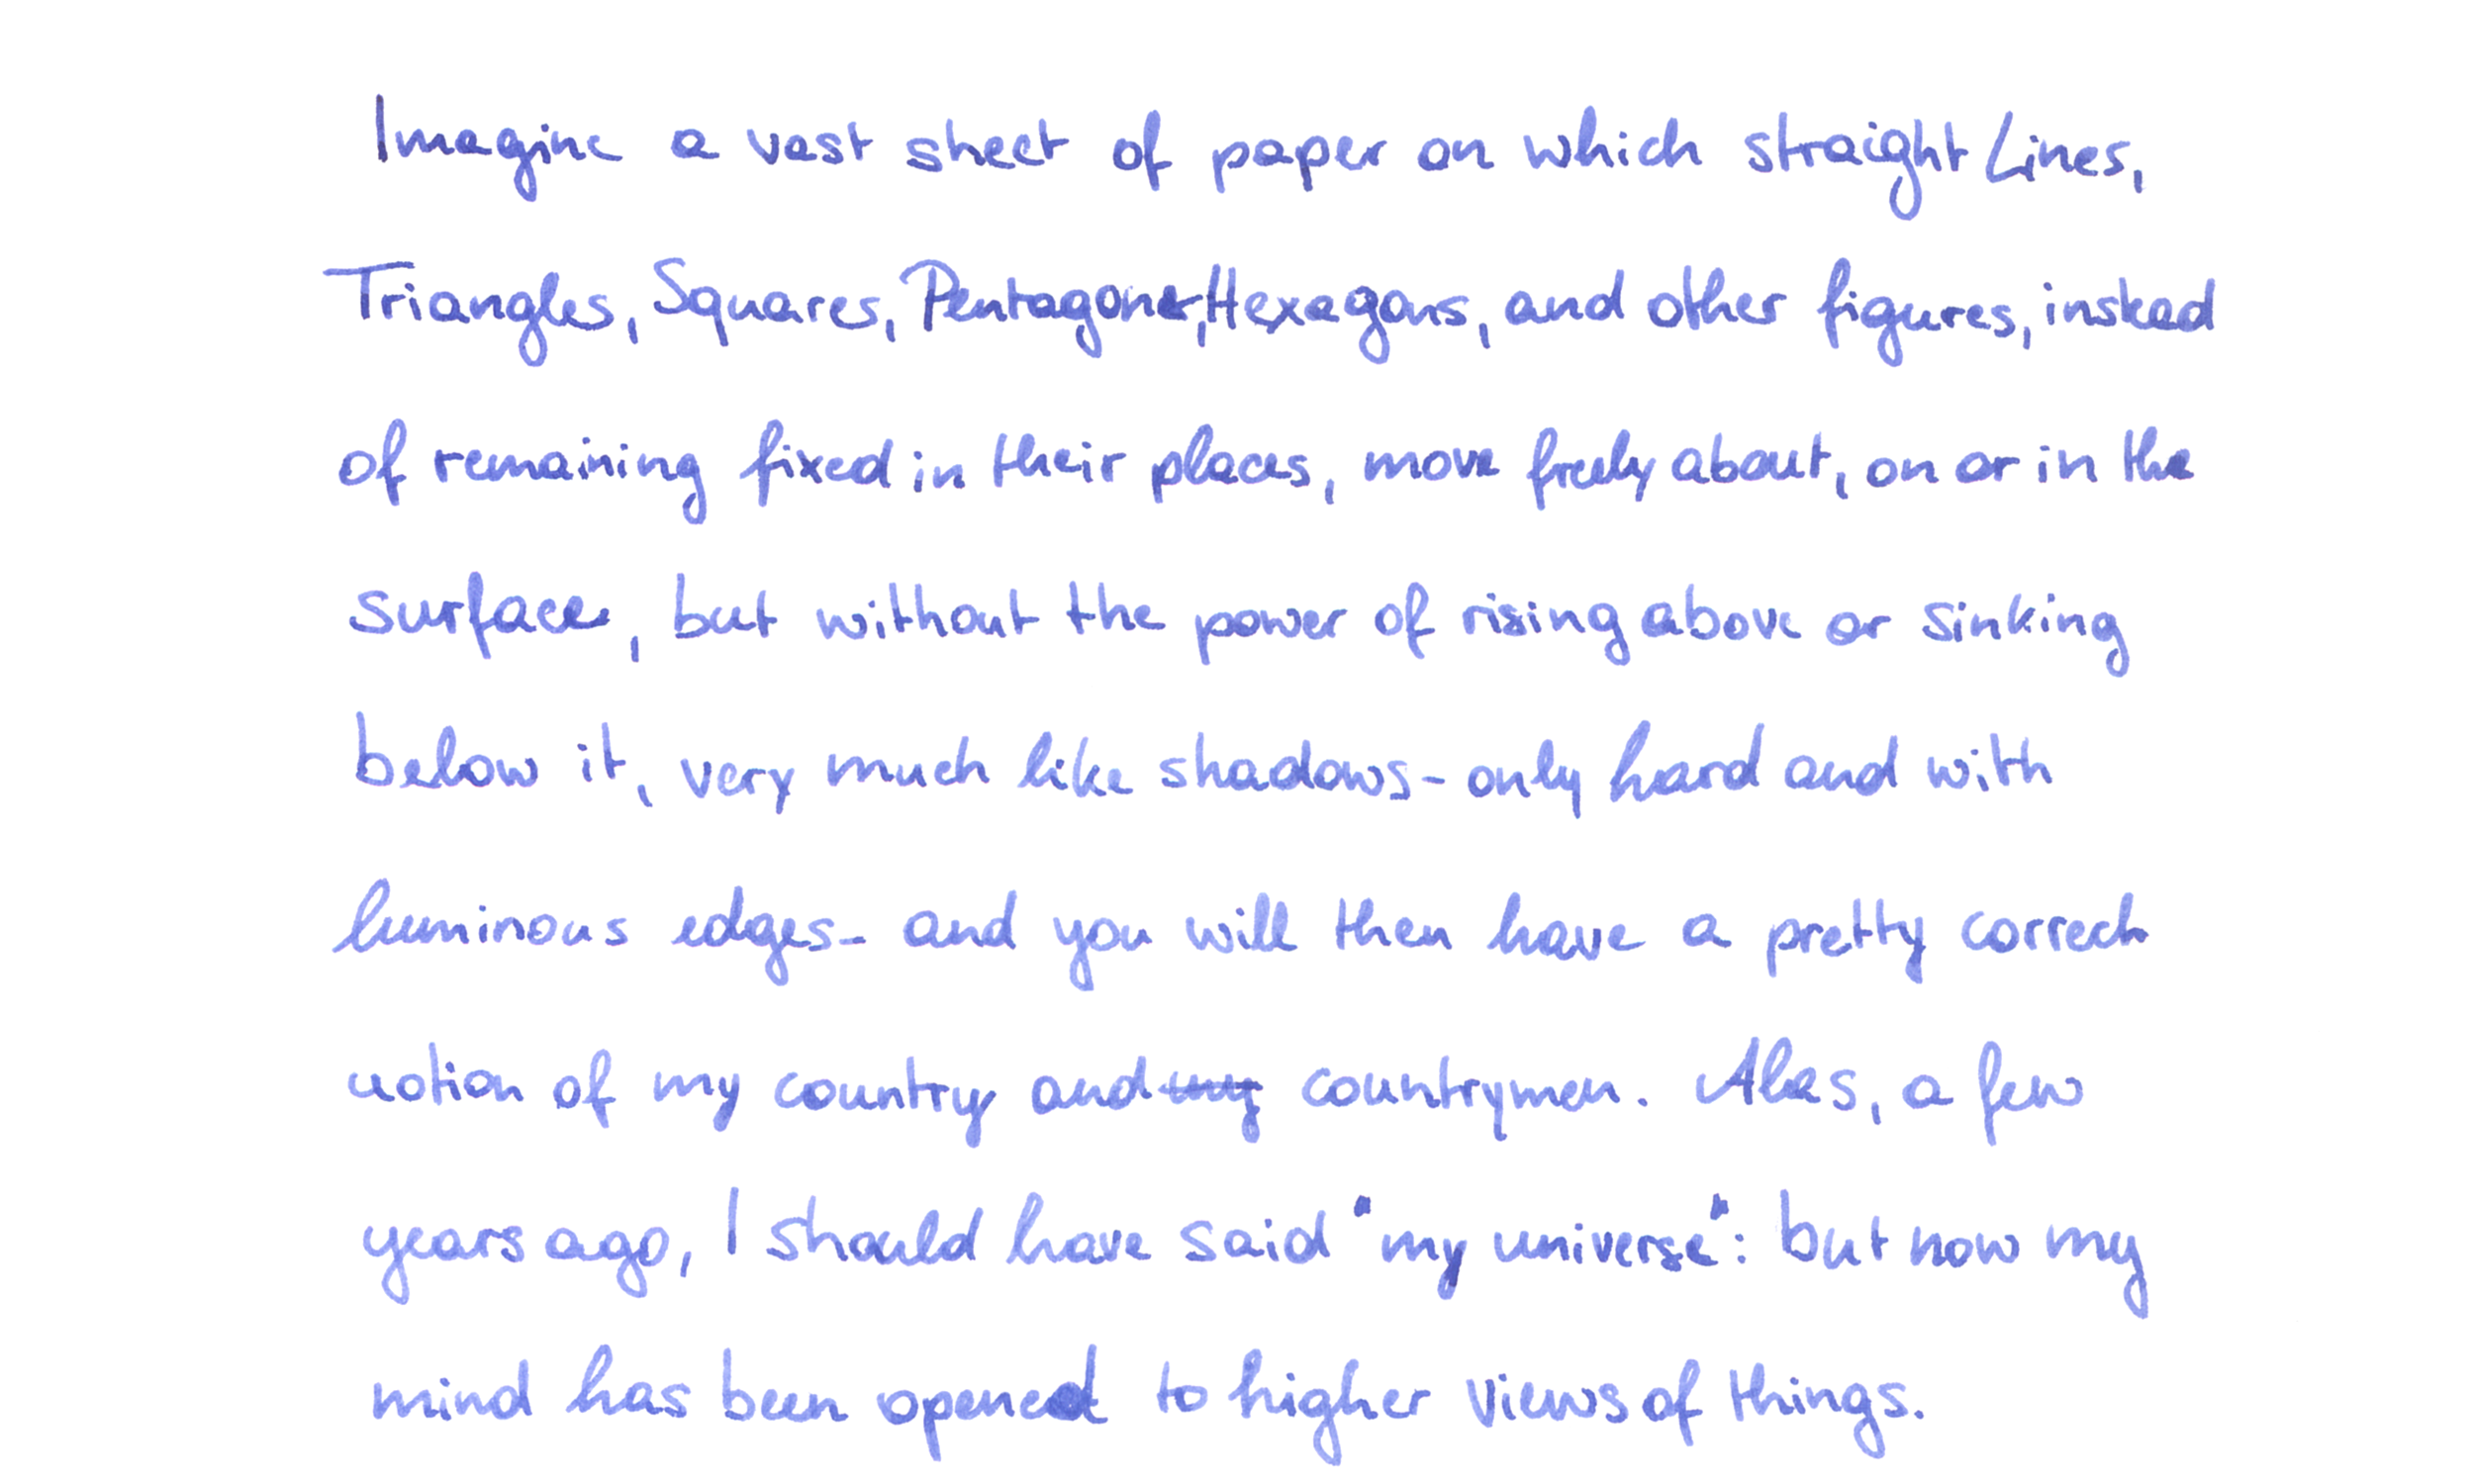 Imagine a vast sheet of paper on which straight Lines,
Triangles, Squares, Pentagons, Hexagons, and other figures, instead
of remaining fixed in their places, move freely about, on or in the
surface, but without the power of rising above or sinking
below it, very much like shadows - only hard and with
luminous edges - and you will then have a pretty correct
notion of my country and my countrymen. Alas, a few
years ago, I should have said "my universe": but now my
mind has been opened to higher views of things.